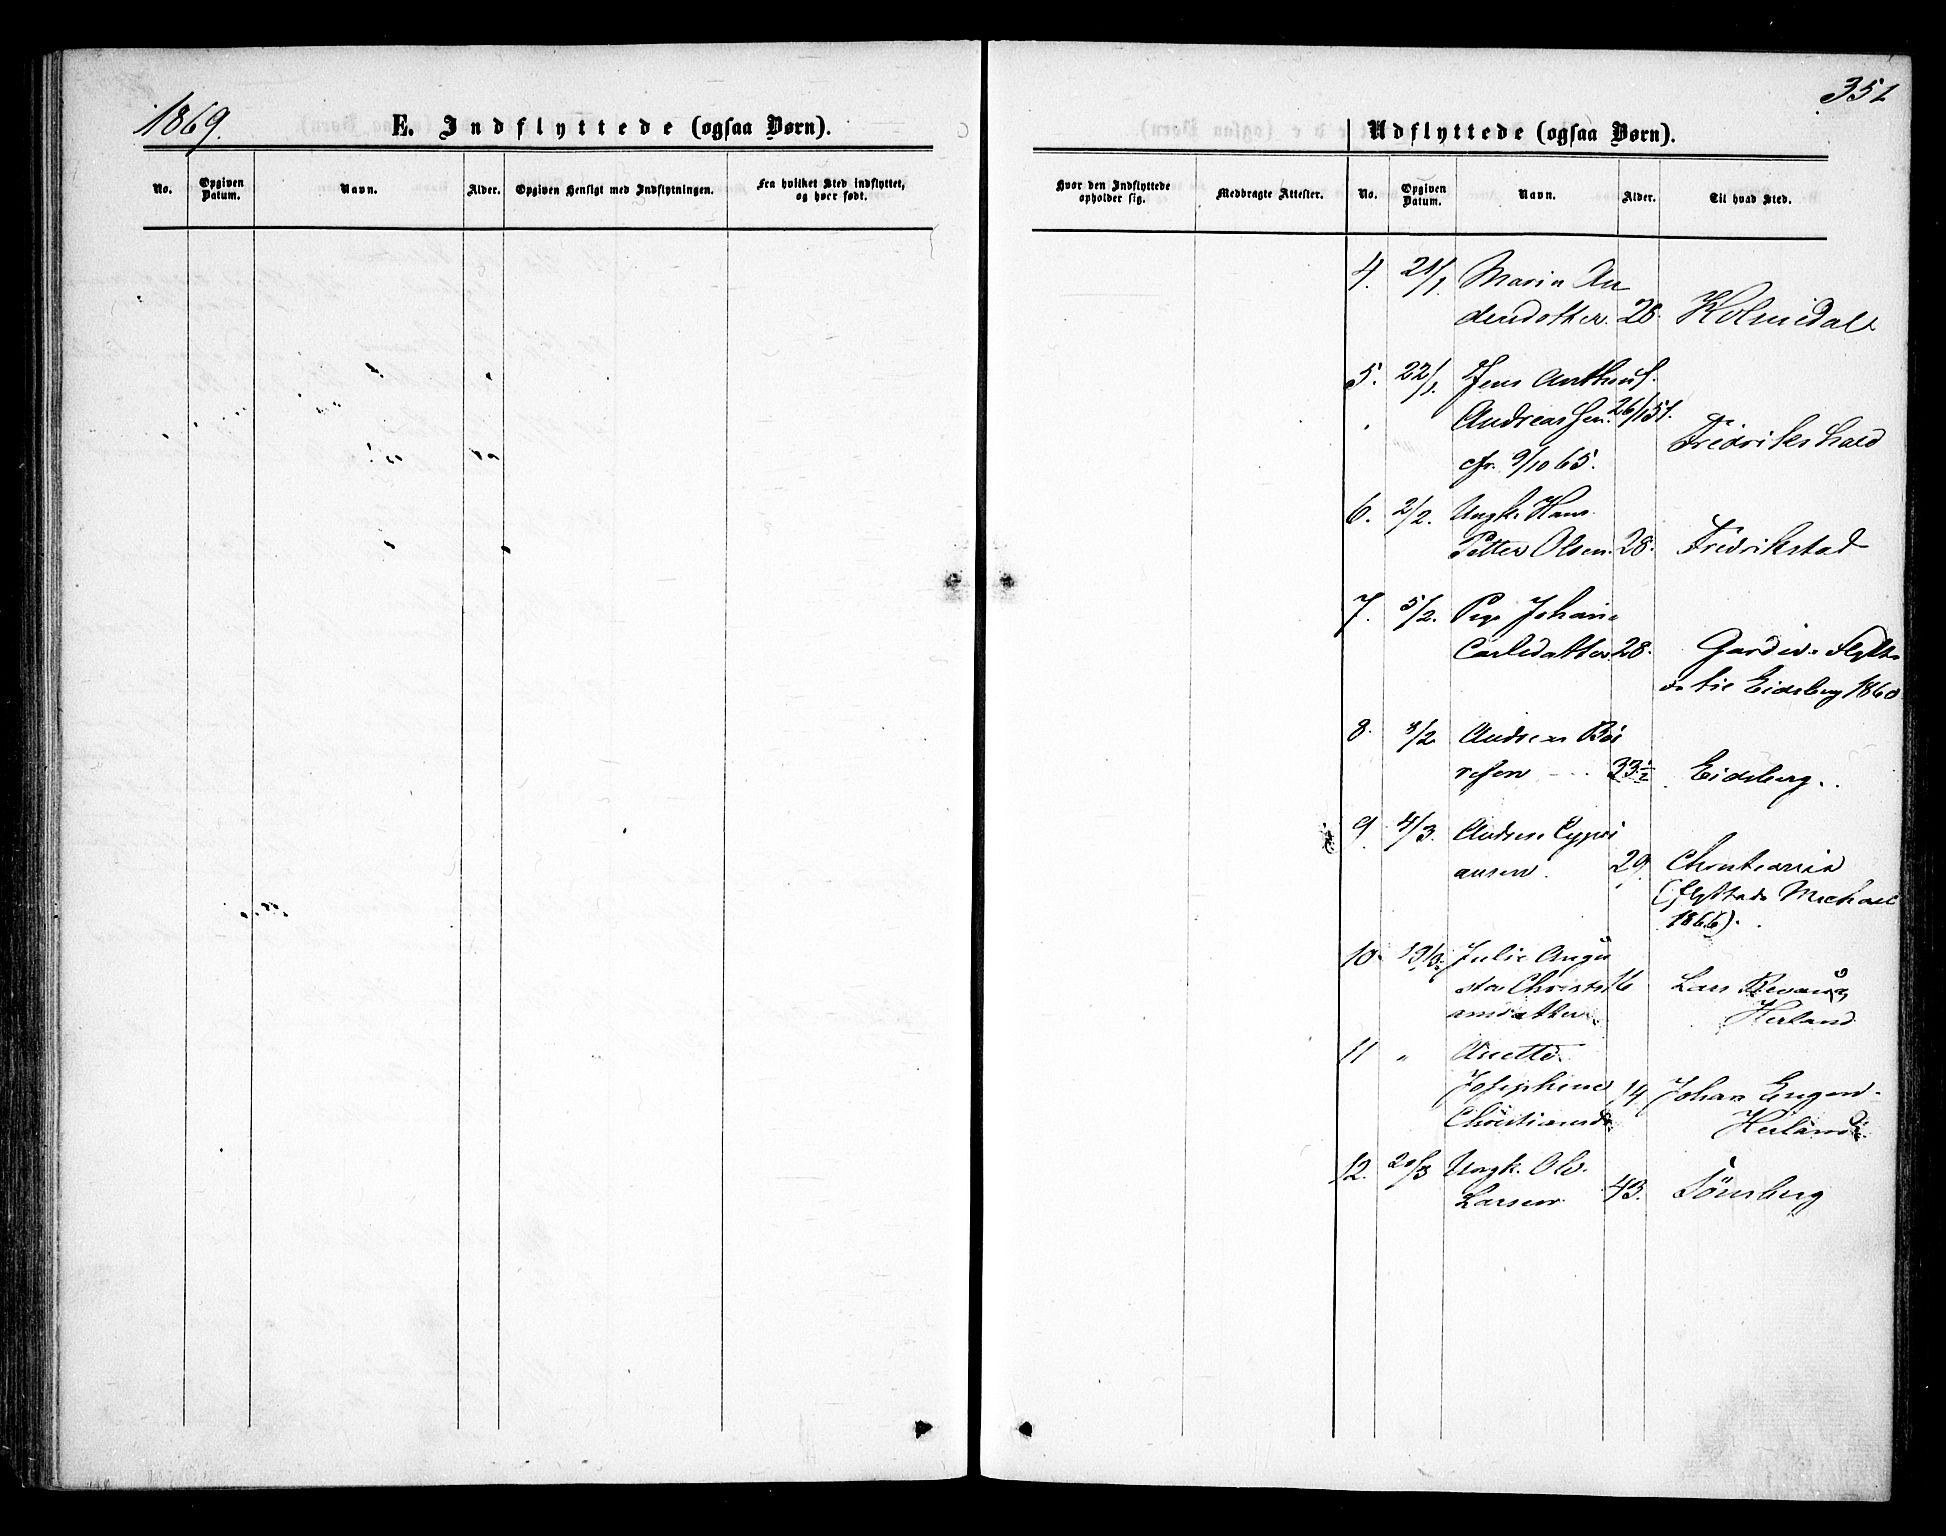 1869.
E. Indflyttede (ogsaa Børn).
No.
Opgiven Datum.
Navn.
Alder.
Opgiven Hensigt med Indflytningen.
Fra hvilket Sted indflyttet,
og hvor født.
351
Udflyttede (ogsaa Børn).
Hvor den Indflyttede
opholder sig.
Medbragte Attester.
No.
Opgiven Datum.
Navn.
Alder.
Til hvad Sted.
4. 21/1. Maria An
densdotter. 28. Holmedal
5. 22/1. Jens Anthius.
Andreassen. 26/1 51.
Fredrikshald
cfr. 9/10 65.
6. 2/2. Ungk. Hans
Petter Olsen. 28. Fredrikstad
7. 5/2. Pige Johane
Carlsdatter 28. flytt
til Eidsberg 1860
8. 8/2 Andreas Bör
resen 33½ Eidsberg.
9. 4/3. Andreas Cypri
ansen. 29. Christiania
(flyttede Michael
1866).
10. 19/3. Julie Augu
sta Christi 16 Lars
ansdatter. Herland
11 " Anette
Josephine 14 Johan Engen
Christiansd. Herland.
12. 20/3 Ungk. Ole
Larsen 43. Tönsberg